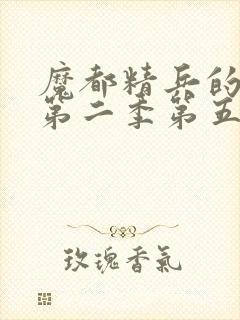 魔都精兵的
第二季第五
玫瑰香氣